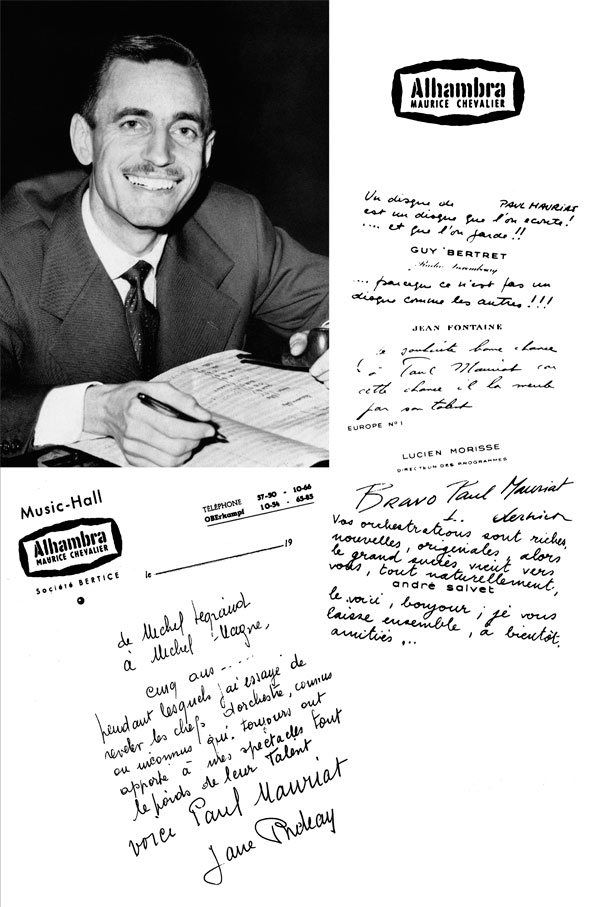 Alhambra
MAURICE CHEVALIER
Un disque de PAUL MAURIAT
est un disque que l'on écoute!
.... et que l'on garde!!
GUY BERTRET
Radio Luxembourg
... parceque ce n'est pas un
disque comme les autres!!!
JEAN FONTAINE
Je souhaite bonne chance
à Paul Mauriat car
cette chance il la mérite
par son talent
EUROPE Nº 1
LUCIEN MORISSE
DIRECTEUR DES PROGRAMMES
BRAVO Paul Mauriat
L.
Vos orchestrations sont riches,
nouvelles, originales, alors
le grand succès vient vers
vous, tout naturellement,
andré salvet
le voici, bonjour; je vous
laisse ensemble, à bientôt,
amitiés...
Music-Hall
Alhambra
MAURICE CHEVALIER
Société BERTICE
TÉLÉPHONE 57-50 - 10-66
OBErkampf 10-54 - 65-85
le 19
de Michel Legrand
à Michel Magne,
cinq ans.....
pendant lesquels j'ai essayé de
révéler les chefs d'orchestre, connus
ou inconnus qui toujours ont
apporté à mes spectacles tout
le poids de leur Talent
voici Paul Mauriat
Jane